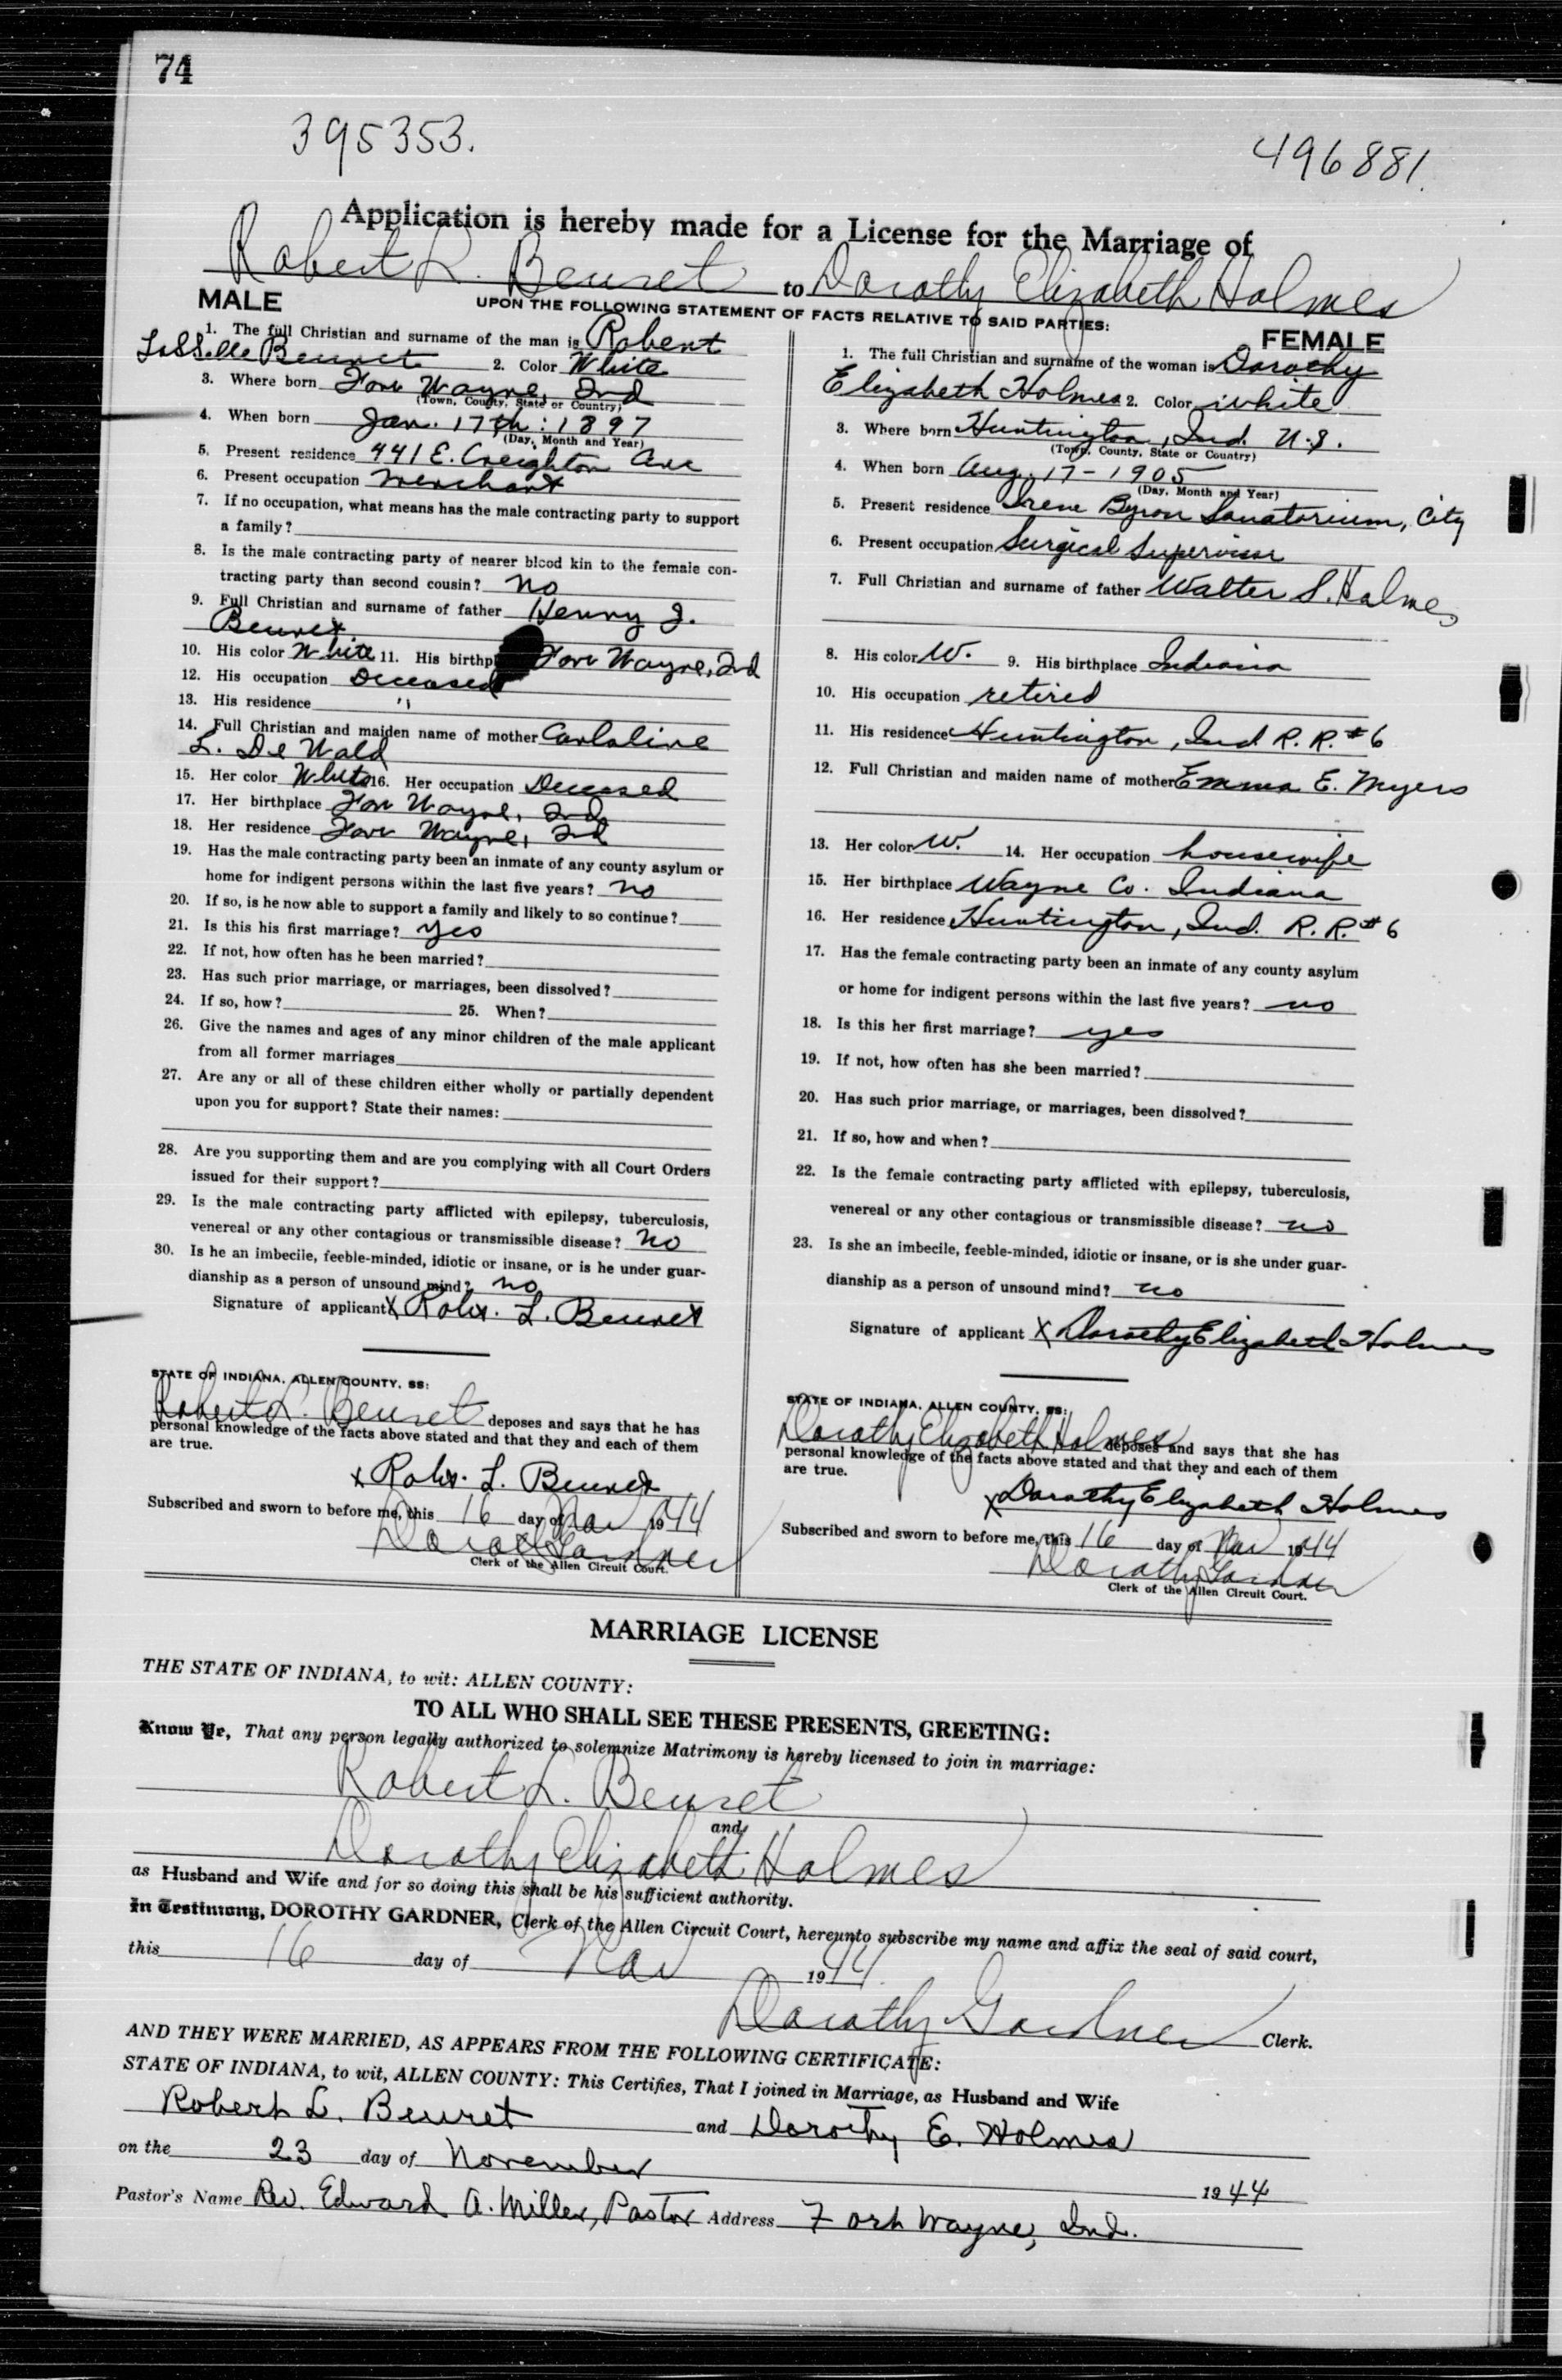 74
395353.
496881.
Application is hereby made for a License for the Marriage of
Robert L. Beuret to Dorothy Elizabeth Holmes
UPON THE FOLLOWING STATEMENT OF FACTS RELATIVE TO SAID PARTIES:
MALE
1. The full Christian and surname of the man is Robert
LaSSelle Beuret 2. Color White
3. Where born Fort Wayne, Ind
(Town, County, State or Country)
4. When born Jan. 17th: 1897
(Day, Month and Year)
5. Present residence 441 E. Creighton Ave
6. Present occupation Merchant
7. If no occupation, what means has the male contracting party to support
a family?
8. Is the male contracting party of nearer blood kin to the female con-
tracting party than second cousin? no
9. Full Christian and surname of father Henry J.
Beuret
10. His color White 11. His birthp Fort Wayne, Ind
12. His occupation Deceased
13. His residence "
14. Full Christian and maiden name of mother
L. De Wald
15. Her color White 16. Her occupation Deceased
17. Her birthplace Fort Wayne, Ind
18. Her residence Fort Wayne, Ind
19. Has the male contracting party been an inmate of any county asylum or
home for indigent persons within the last five years? no
20. If so, is he now able to support a family and likely to so continue?
21. Is this his first marriage? yes
22. If not, how often has he been married?
23. Has such prior marriage, or marriages, been dissolved?
24. If so, how? 25. When?
26. Give the names and ages of any minor children of the male applicant
from all former marriages
27. Are any or all of these children either wholly or partially dependent
upon you for support? State their names:
28. Are you supporting them and are you complying with all Court Orders
issued for their support?
29. Is the male contracting party afflicted with epilepsy, tuberculosis,
venereal or any other contagious or transmissible disease? No
30. Is he an imbecile, feeble-minded, idiotic or insane, or is he under guar-
dianship as a person of unsound mind? no
Signature of applicant X Robt. L. Beuret
STATE OF INDIANA, ALLEN COUNTY, SS:
Robert L. Beuret deposes and says that he has
personal knowledge of the facts above stated and that they and each of them
are true.
x Robt. L. Beuret
Subscribed and sworn to before me, this 16 day of Nov 1944
Dorothy Gardner
Clerk of the Allen Circuit Court.
FEMALE
1. The full Christian and surname of the woman is Dorothy
Elizabeth Holmes 2. Color white
3. Where born Huntington, Ind. U.S.
(Town, County, State or Country)
4. When born Aug. 17-1905
(Day, Month and Year)
5. Present residence Irene Byron Sanatorium, City
6. Present occupation Surgical Supervisor
7. Full Christian and surname of father Walter S. Holmes
8. His color W. 9. His birthplace Indiana
10. His occupation retired
11. His residence Huntington, Ind. R. R. #6
12. Full Christian and maiden name of mother Emma E. Myers
13. Her color W. 14. Her occupation housewife
15. Her birthplace Wayne Co. Indiana
16. Her residence Huntington, Ind. R. R. #6
17. Has the female contracting party been an inmate of any county asylum
or home for indigent persons within the last five years? no
18. Is this her first marriage? yes
19. If not, how often has she been married?
20. Has such prior marriage, or marriages, been dissolved?
21. If so, how and when?
22. Is the female contracting party afflicted with epilepsy, tuberculosis,
venereal or any other contagious or transmissible disease? no
23. Is she an imbecile, feeble-minded, idiotic or insane, or is she under guar-
dianship as a person of unsound mind? no
Signature of applicant X Dorothy Elizabeth Holmes
STATE OF INDIANA, ALLEN COUNTY, SS:
Dorothy Elizabeth Holmes deposes and says that she has
personal knowledge of the facts above stated and that they and each of them
are true.
x Dorothy Elizabeth Holmes
Subscribed and sworn to before me, this 16 day of Nov 1944
Dorothy Gardner
Clerk of the Allen Circuit Court.
MARRIAGE LICENSE
THE STATE OF INDIANA, to wit: ALLEN COUNTY:
TO ALL WHO SHALL SEE THESE PRESENTS, GREETING:
Know Ye, That any person legally authorized to solemnize Matrimony is hereby licensed to join in marriage:
Robert L. Beuret
and
Dorothy Elizabeth Holmes
as Husband and Wife and for so doing this shall be his sufficient authority.
In Testimony, DOROTHY GARDNER, Clerk of the Allen Circuit Court, hereunto subscribe my name and affix the seal of said court,
this 16 day of Nov 1944.
Dorothy Gardner Clerk.
AND THEY WERE MARRIED, AS APPEARS FROM THE FOLLOWING CERTIFICATE:
STATE OF INDIANA, to wit, ALLEN COUNTY: This Certifies, That I joined in Marriage, as Husband and Wife
Robert L. Beuret and Dorothy E. Holmes
on the 23 day of November 1944
Pastor's Name Rev. Edward A. Miller, Pastor Address Fort Wayne, Ind.